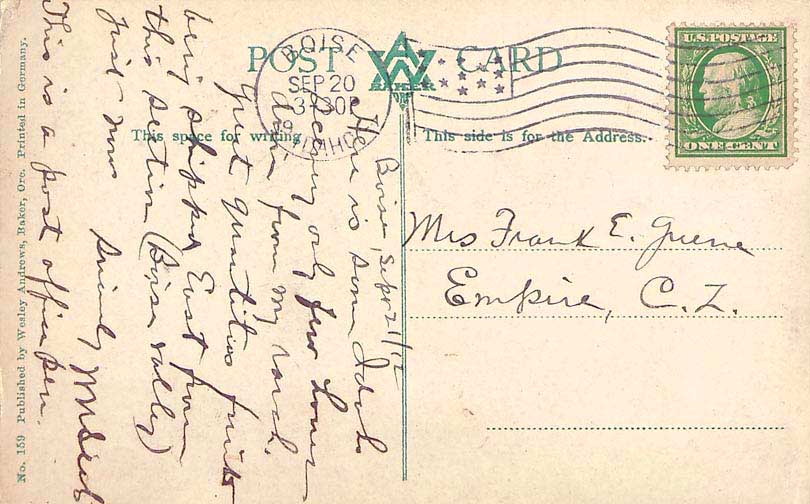 POST CARD
AWB
BAKER
BOISE
SEP 20
3-30P
19
IDAHO
U.S. POSTAGE
ONE CENT
This space for writing
This side is for the Address.
Boise, Sept 21/12
Here is some Idaho
scenery only few hours
drive from my ranch.
Great quantities fruit
being shipped East from
this section (Boise valley)
Just now
Sincerely
This is a post office pen.
Mrs Frank E. Greene
Empire, C. Z.
No. 159 Published by Wesley Andrews, Baker, Ore. Printed in Germany.